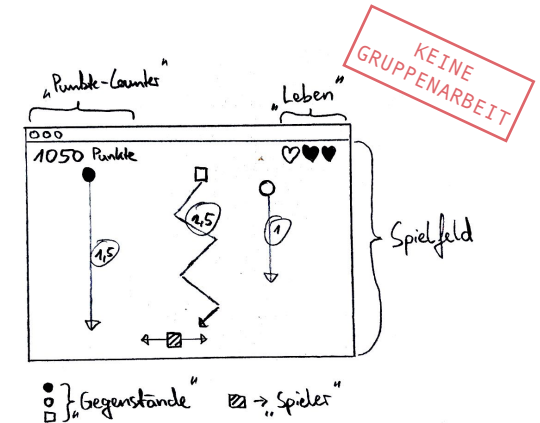 KEINE
GRUPPENARBEIT
„Punkte-Counter"
„Leben"
1050 Punkte
2,5
1
1,5
Spielfeld
„Gegenstände"
„Spieler"